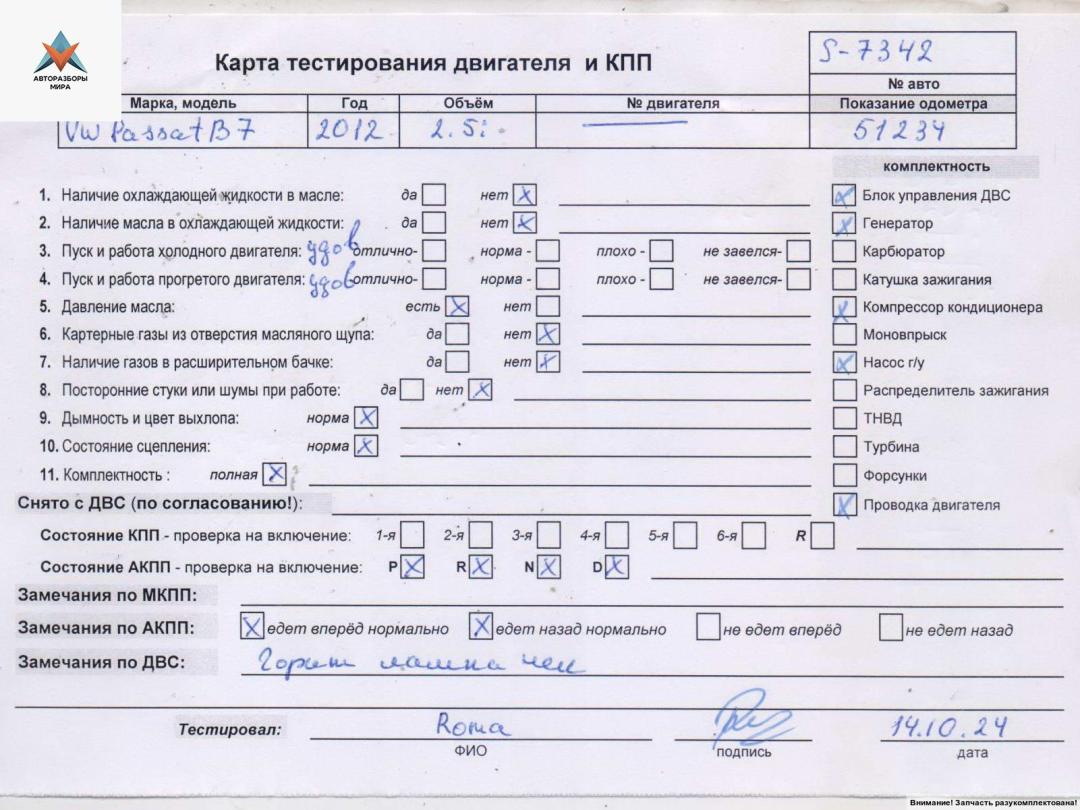 АВТОРАЗБОРЫ
МИРА
Карта тестирования двигателя и КПП
S-7342
№ авто
Марка, модель Год Объём № двигателя Показание одометра
VW Passat B7 2012 2.5i 51234
комплектность
1. Наличие охлаждающей жидкости в масле: да нет X Блок управления ДВС X
2. Наличие масла в охлаждающей жидкости: да нет X Генератор X
3. Пуск и работа холодного двигателя: удов отлично- норма - плохо - не завелся- Карбюратор
4. Пуск и работа прогретого двигателя: удов отлично- норма - плохо - не завелся- Катушка зажигания
5. Давление масла: есть X нет Компрессор кондиционера X
6. Картерные газы из отверстия масляного щупа: да нет X Моновпрыск
7. Наличие газов в расширительном бачке: да нет X Насос г/у X
8. Посторонние стуки или шумы при работе: да нет X Распределитель зажигания
9. Дымность и цвет выхлопа: норма X ТНВД
10. Состояние сцепления: норма X Турбина
11. Комплектность : полная X Форсунки
Снято с ДВС (по согласованию!): Проводка двигателя X
Состояние КПП - проверка на включение: 1-я 2-я 3-я 4-я 5-я 6-я R
Состояние АКПП - проверка на включение: P X R X N X D X
Замечания по МКПП:
Замечания по АКПП: X едет вперёд нормально X едет назад нормально не едет вперёд не едет назад
Замечания по ДВС: Горит лампа чек
Тестировал: Roma 14.10.24
ФИО подпись дата
Внимание! Запчасть разукомплектована!